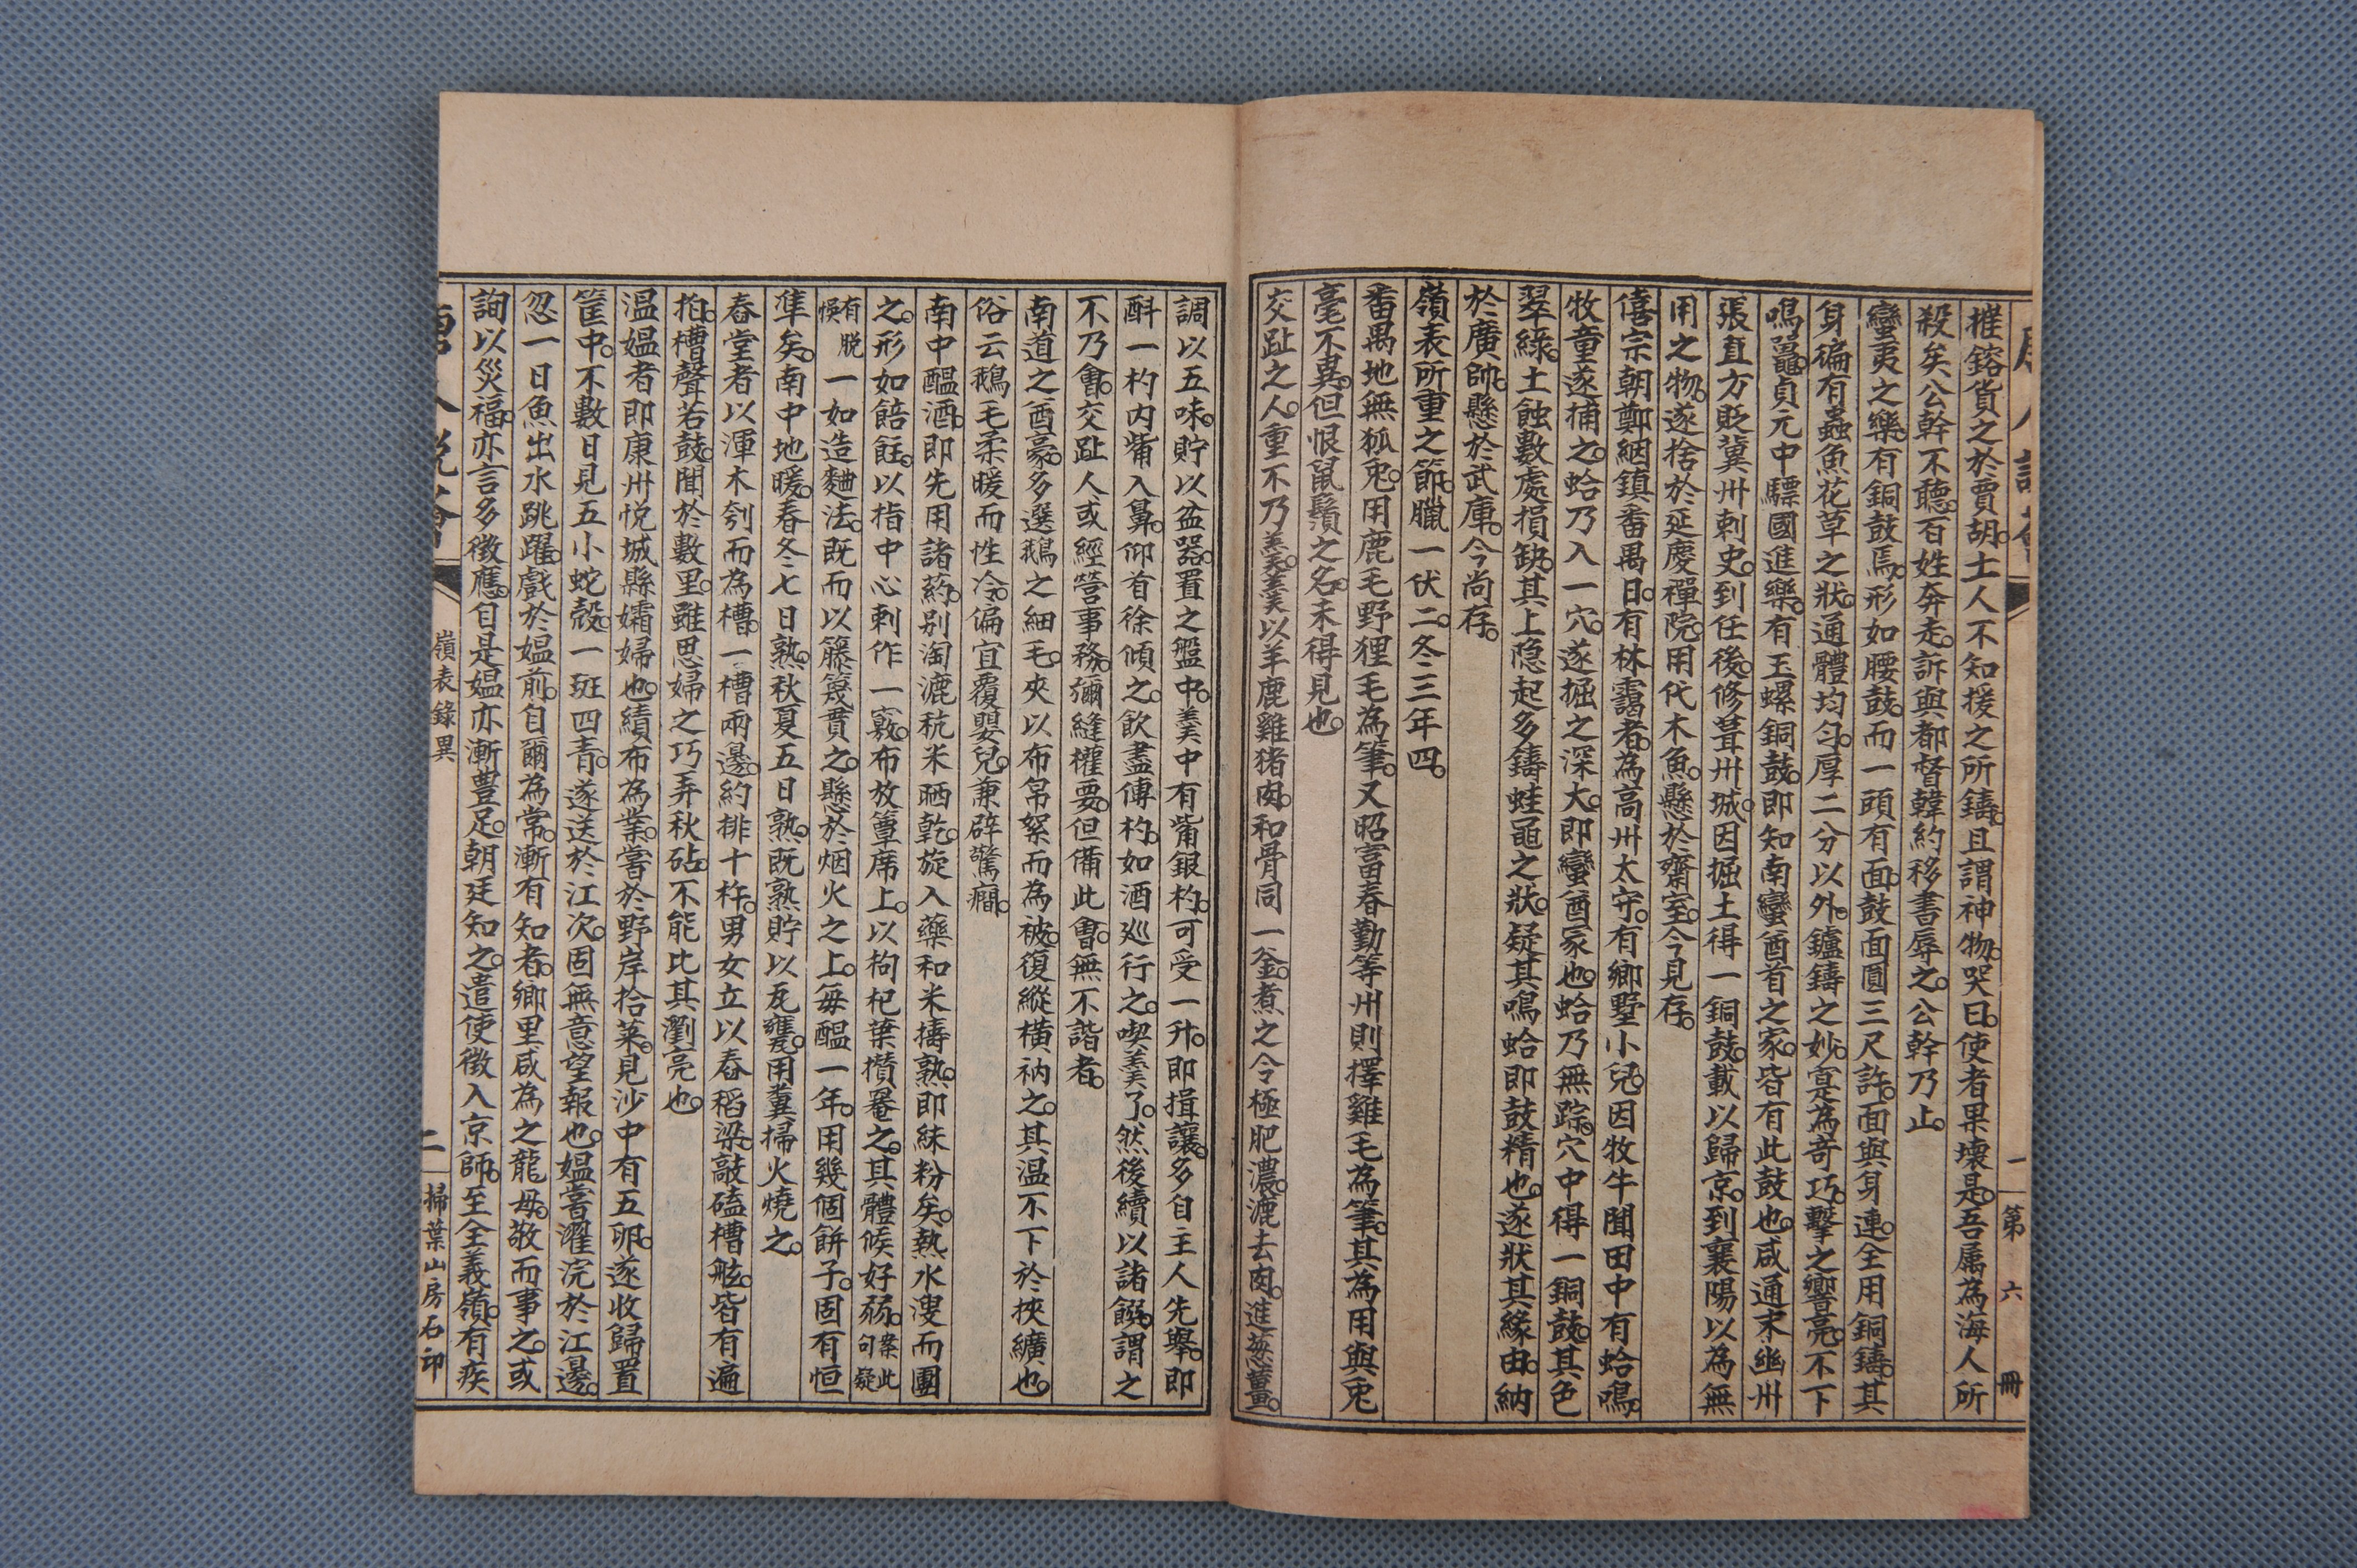 摧鎔貨之於賈胡。土人不知援之所鑄。且謂神物。哭曰。使者果壞是。吾屬為海人所
殺矣。公幹不聽。百姓奔走。訴與都督韓約移書辱之。公幹乃止。
蠻夷之樂。有銅鼓焉。形如腰鼓。而一頭有面。鼓面圓三尺許。面與身連。全用銅鑄。其
身徧有蟲魚花草之狀。通體均勻。厚二分以外。鑪鑄之妙。寔為奇巧。擊之響亮。不下
鳴鼉。貞元中驃國進樂。有玉螺銅鼓。即知南蠻酋首之家。皆有此鼓也。咸通末幽州
張直方貶冀州刺史。到任後。修葺州城。因掘土得一銅鼓。載以歸京。到襄陽以為無
用之物。遂捨於延慶禪院。用代木魚。懸於齋室。今見存。
僖宗朝鄭絪鎮番禺日。有林靄者。為高州太守。有鄉墅小兒。因牧牛聞田中有蛤鳴。
牧童遂捕之。蛤乃入一穴。遂掘之深大。即蠻酋冢也。蛤乃無踪。穴中得一銅鼓。其色
翠綠。土蝕數處損缺。其上隐起多鑄蛙黽之狀。疑其鳴蛤即鼓精也。遂狀其緣由。納
於廣帥。懸於武庫。今尚存。
嶺表所重之節。臘一伏二。冬三年四。
番禺地無狐兎。用鹿毛野狸毛為筆。又昭富春勤等州則擇雞毛為筆。其為用與兎
毫不異。但恨鼠鬚之名。未得見也。
交趾之人。重不乃羹。羹以羊鹿雞猪肉。和骨同一釜。煮之令極肥濃。漉去肉。進葱薑。
唐人說薈
一
第六冊
調以五味。貯以盆器。置之盤中。羹中有觜銀杓。可受一升。即揖讓。多自主人先舉。即
酙一杓內觜入鼻。仰首徐傾之。飲盡傳杓。如酒廵行之。喫羹了。然後續以諸饌。謂之
不乃會。交趾人或經營事務。彌縫權要。但備此會。無不諧者。
南道之酋豪。多選鵝之細毛。夾以布帛絮而為被。復縱橫衲之。其温不下於挾纊也。
俗云鵝毛柔暖而性冷。偏宜覆嬰兒。兼辟驚癇。
南中醞酒。即先用諸葯。别淘漉秔米晒乾。旋入藥和米擣熟。即綠粉矣。熱水溲而團
之。形如餢飳。以指中心刺作一竅。布放簟席上。以枸杞葉攢罨之。其體候好弱。案此句疑
有脱悞一如造麯法。既而以籐篾貫之。懸於烟火之上。每醞一年。用幾個餅子。固有恒
準矣。南中地暖。春冬七日熟。秋夏五日熟。既熟貯以瓦甕。用糞掃火燒之。
舂堂者以渾木刳而為槽。一槽兩邊。約排十杵。男女立以舂稻梁。敲磕槽舷。皆有遍
拍。槽聲若鼓。聞於數里。雖思婦之巧弄秋砧。不能比其瀏亮也。
温媪者即康州悦城縣孀婦也。績布為業。嘗於野岸拾菜。見沙中有五卵。遂收歸置
筐中。不數日見五小蛇殼。一斑四青。遂送於江次。固無意望報也。媪嘗濯浣於江邊。
忽一日魚出水跳躍。戲於媪前。自爾為常。漸有知者。鄉里咸為之龍母。敬而事之。或
詢以災福。亦言多徵應。自是媪亦漸豐足。朝廷知之。遣使徵入京師。至全義嶺。有疾
唐人說薈
嶺表錄異
二
掃葉山房石印